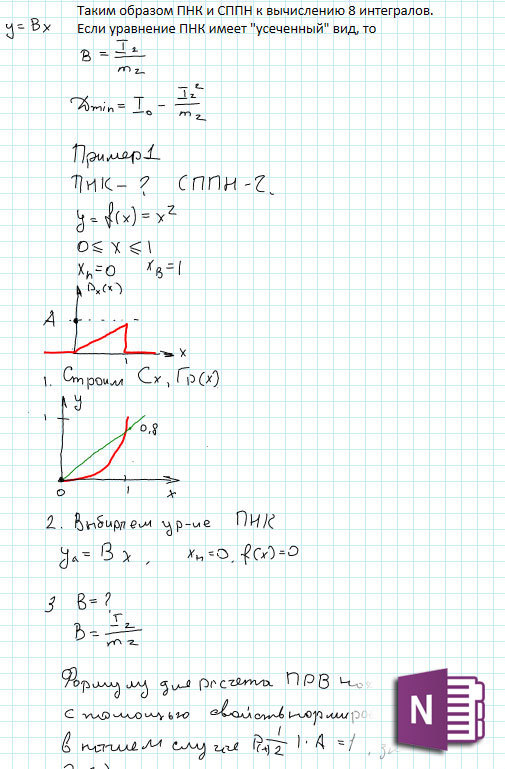 Таким образом ПНК и СППН к вычислению 8 интегралов.
y = Bx
Если уравнение ПНК имеет "усеченный" вид, то
B = I₂ / m₂
Dmin = I₀ - I₂² / m₂
Пример 1
ПНК - ? СППН - ?
y = f(x) = x²
0 ⩽ x ⩽ 1
xн = 0 xв = 1
Px(x)
A
1 x
1. Строим Сх, Гр(x)
y
1
0,8
0 1 x
2. Выбираем ур-ие ПНК
yа = B x, xн = 0, f(x) = 0
3 B = ?
B = I₂ / m₂
Формулу для расчета ПРВ
с помощью
в нашем случае 1/2 1 · A = 1
N